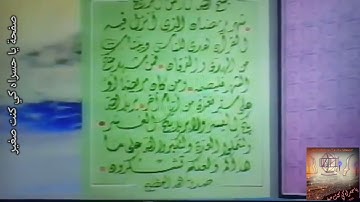 بسم الله الرحمن الرحيم
شهر رمضان الذي أنزل فيه
القرآن هدى للناس وبينات
من الهدى والفرقان فمن شهد منكم
الشهر فليصمه ومن كان مريضا أو
على سفر فعدة من أيام أخر يريد الله
بكم اليسر ولا يريد بكم العسر
ولتكملوا العدة ولتكبروا الله على ما
هداكم ولعلكم تشكرون
صدق الله العظيم
صفحة يا حسراه كي كنت صغير